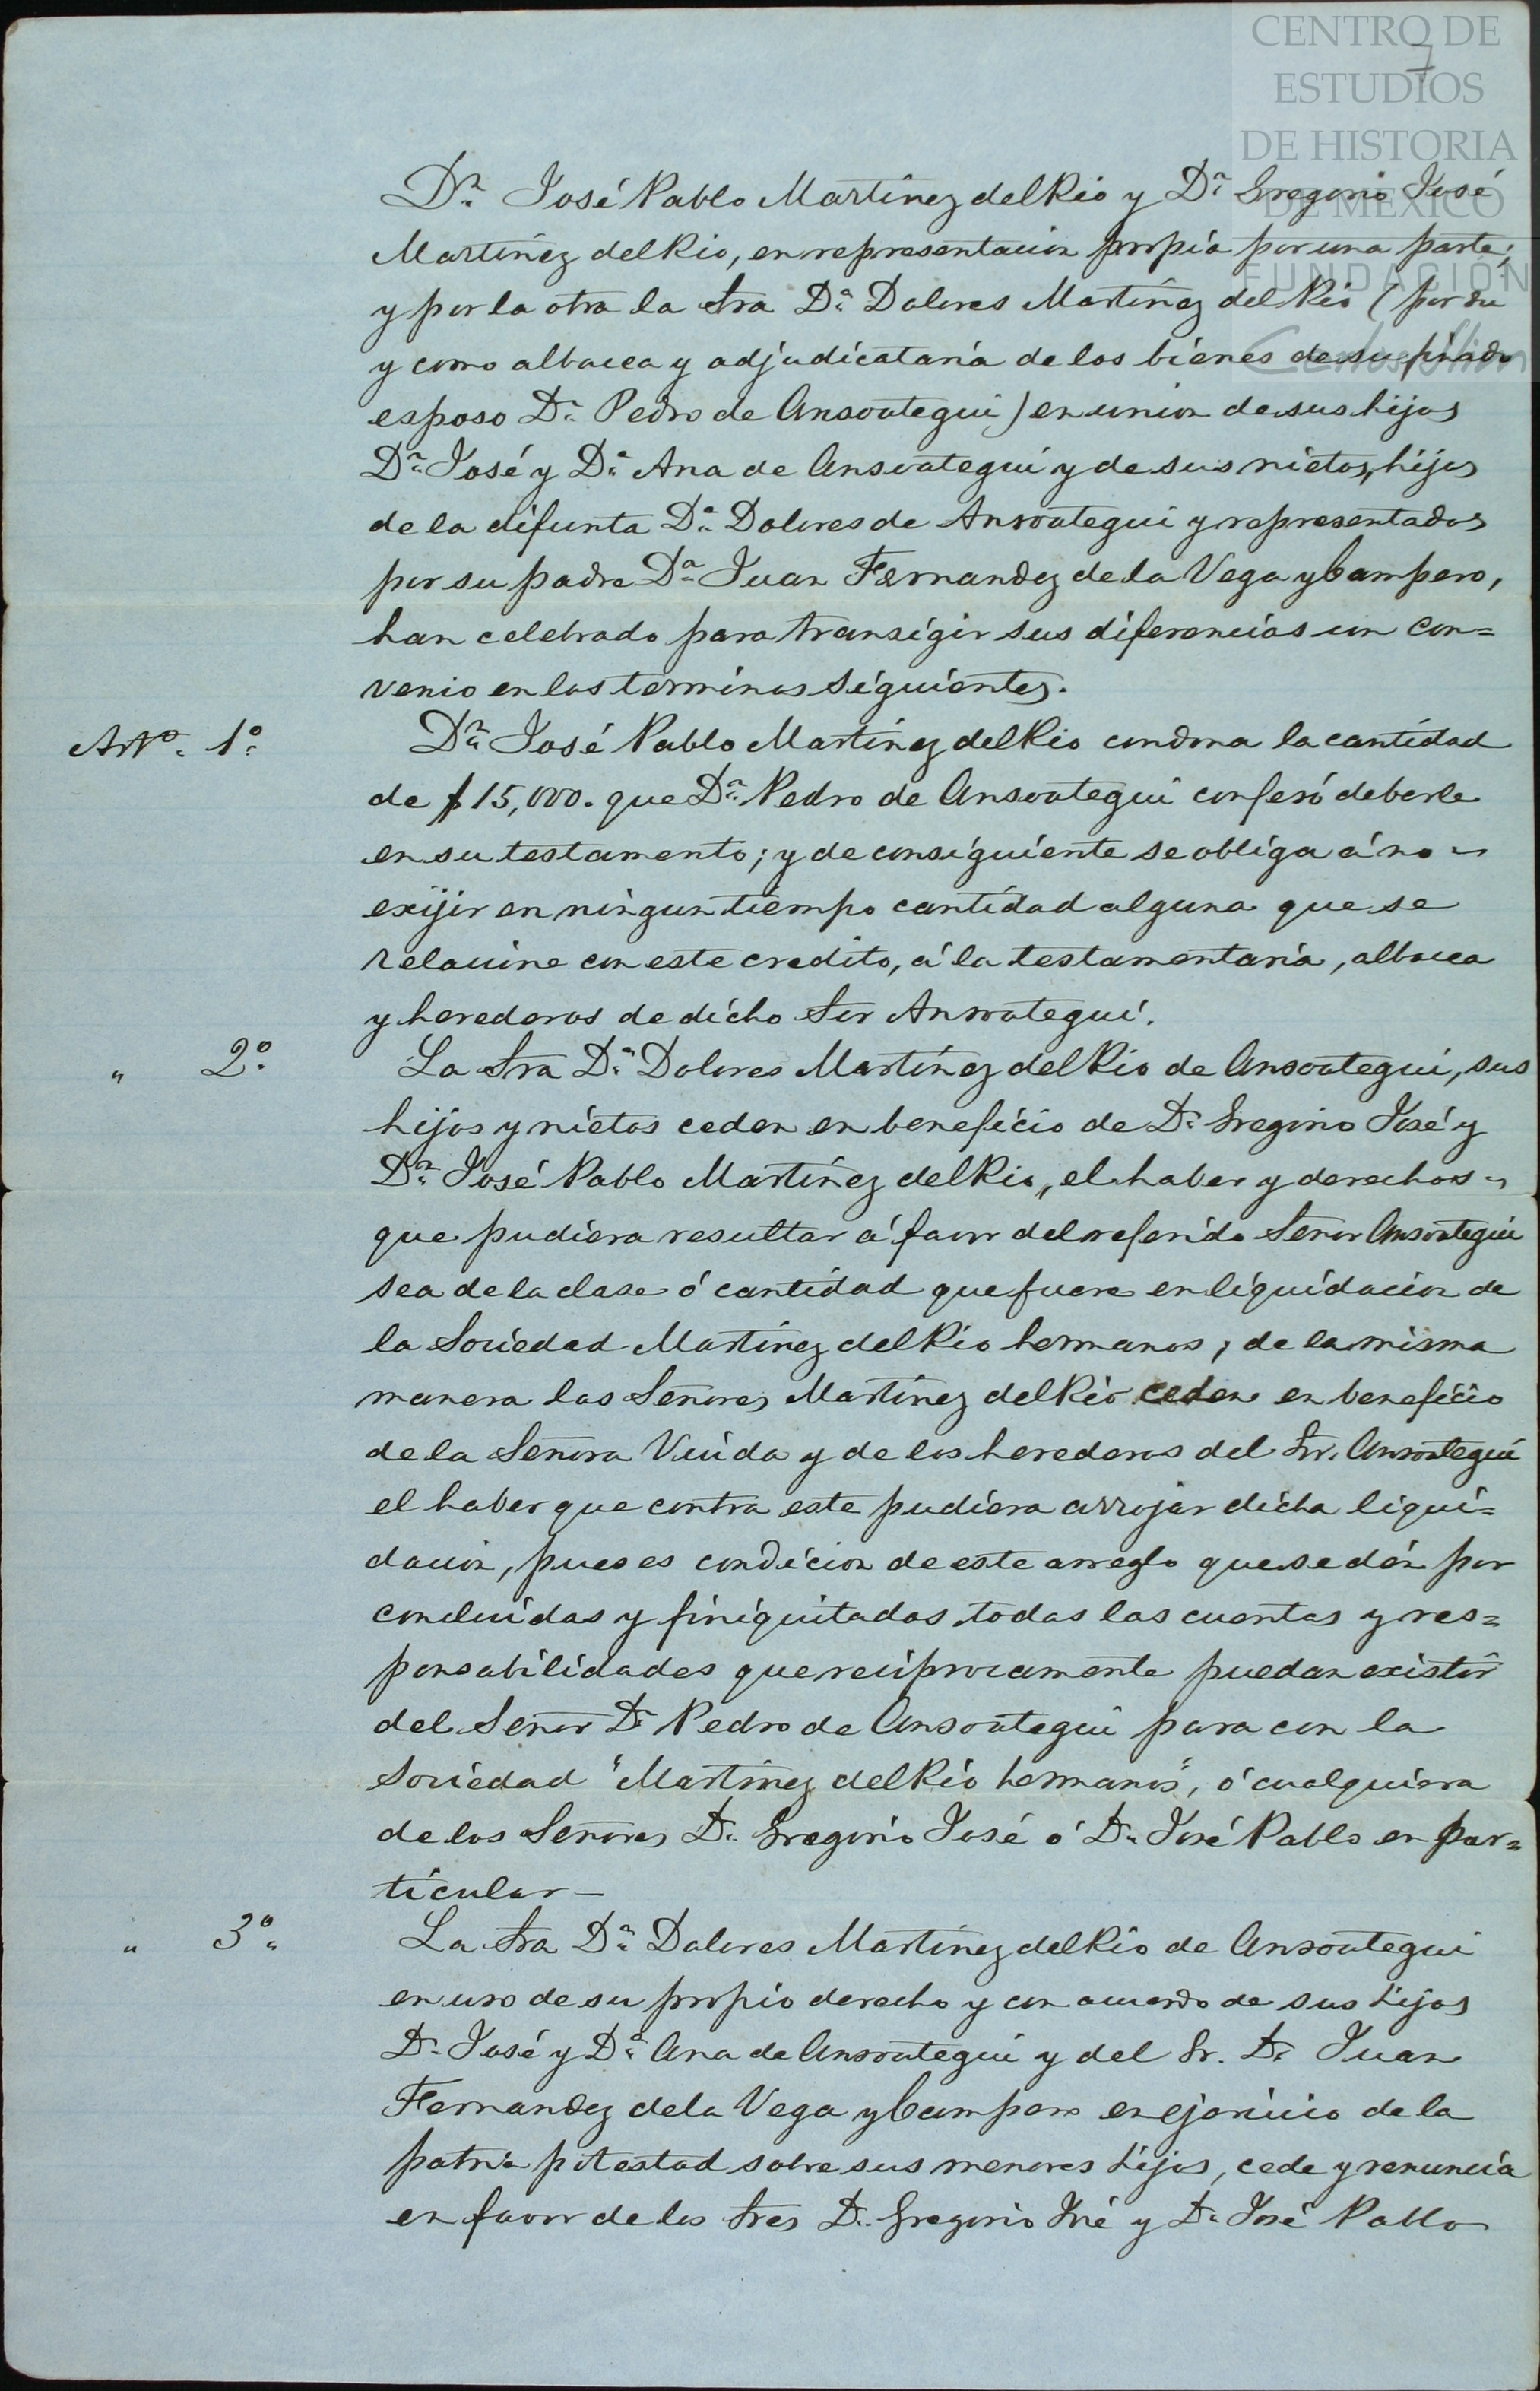 CENTRO DE
ESTUDIOS
DE HISTORIA
DE MEXICO
FUNDACIÓN
7
Dn. José Pablo Martínez del Rio y Dn. Gregorio José
Martínez del Rio, en representacion propia por una parte;
y por la otra la Sra Da. Dolores Martínez del Rio (por su
y como albacea y adjudicataria de los bienes de su finado
esposo Dn. Pedro de Ansoategui) en union de sus hijos
Dn. José y Da. Ana de Ansoategui y de sus nietos, hijos
de la difunta Da. Dolores de Ansoategui y representados
por su padre Dn. Juan Fernandez de la Vega y Campero,
han celebrado para transigir sus diferencias un con=
venio en los terminos siguientes.
Arto. 1o. Dn. José Pablo Martínez del Rio condona la cantidad
de $15,000. que Dn. Pedro de Ansoategui confesó deberle
en su testamento; y de consiguiente se obliga á no
exijir en ningun tiempo cantidad alguna que se
relacione con este credito, á la testamentaria, albacea
y herederos de dicho Sor Ansoategui.
" 2o. La Sra Da. Dolores Martínez del Rio de Ansoategui, sus
hijos y nietos ceden en beneficio de Dn. Gregorio José y
Dn. José Pablo Martínez del Rio, el haber y derechos
que pudiera resultar á favor del referido Señor Ansoategui
sea de la clase ó cantidad que fuere en liquidacion de
la Sociedad Martínez del Rio hermanos; de la misma
manera los Señores Martínez del Rio ceden en beneficio
de la Señora Viuda y de los herederos del Sr. Ansoategui
el haber que contra este pudiera arrojar dicha liqui=
dacion, pues es condicion de este arreglo que se dén por
concluidas y finiquitadas todas las cuentas y res=
ponsabilidades que reciprocamente puedan existir
del Señor Dn Pedro de Ansoategui para con la
Sociedad "Martínez del Rio hermanos", ó cualquiera
de los Señores Dn. Gregorio José ó Dn. José Pablo en par=
ticular—
" 3o. La Sra Da. Dolores Martínez del Rio de Ansoategui
en uso de su propio derecho y con acuerdo de sus hijos
Dn. José y Da. Ana de Ansoategui y del Sr. Dn. Juan
Fernandez de la Vega y Campero en ejercicio de la
patria potestad sobre sus menores hijos, cede y renuncia
en favor de los Sres Dn. Gregorio José y Dn. José Pablo